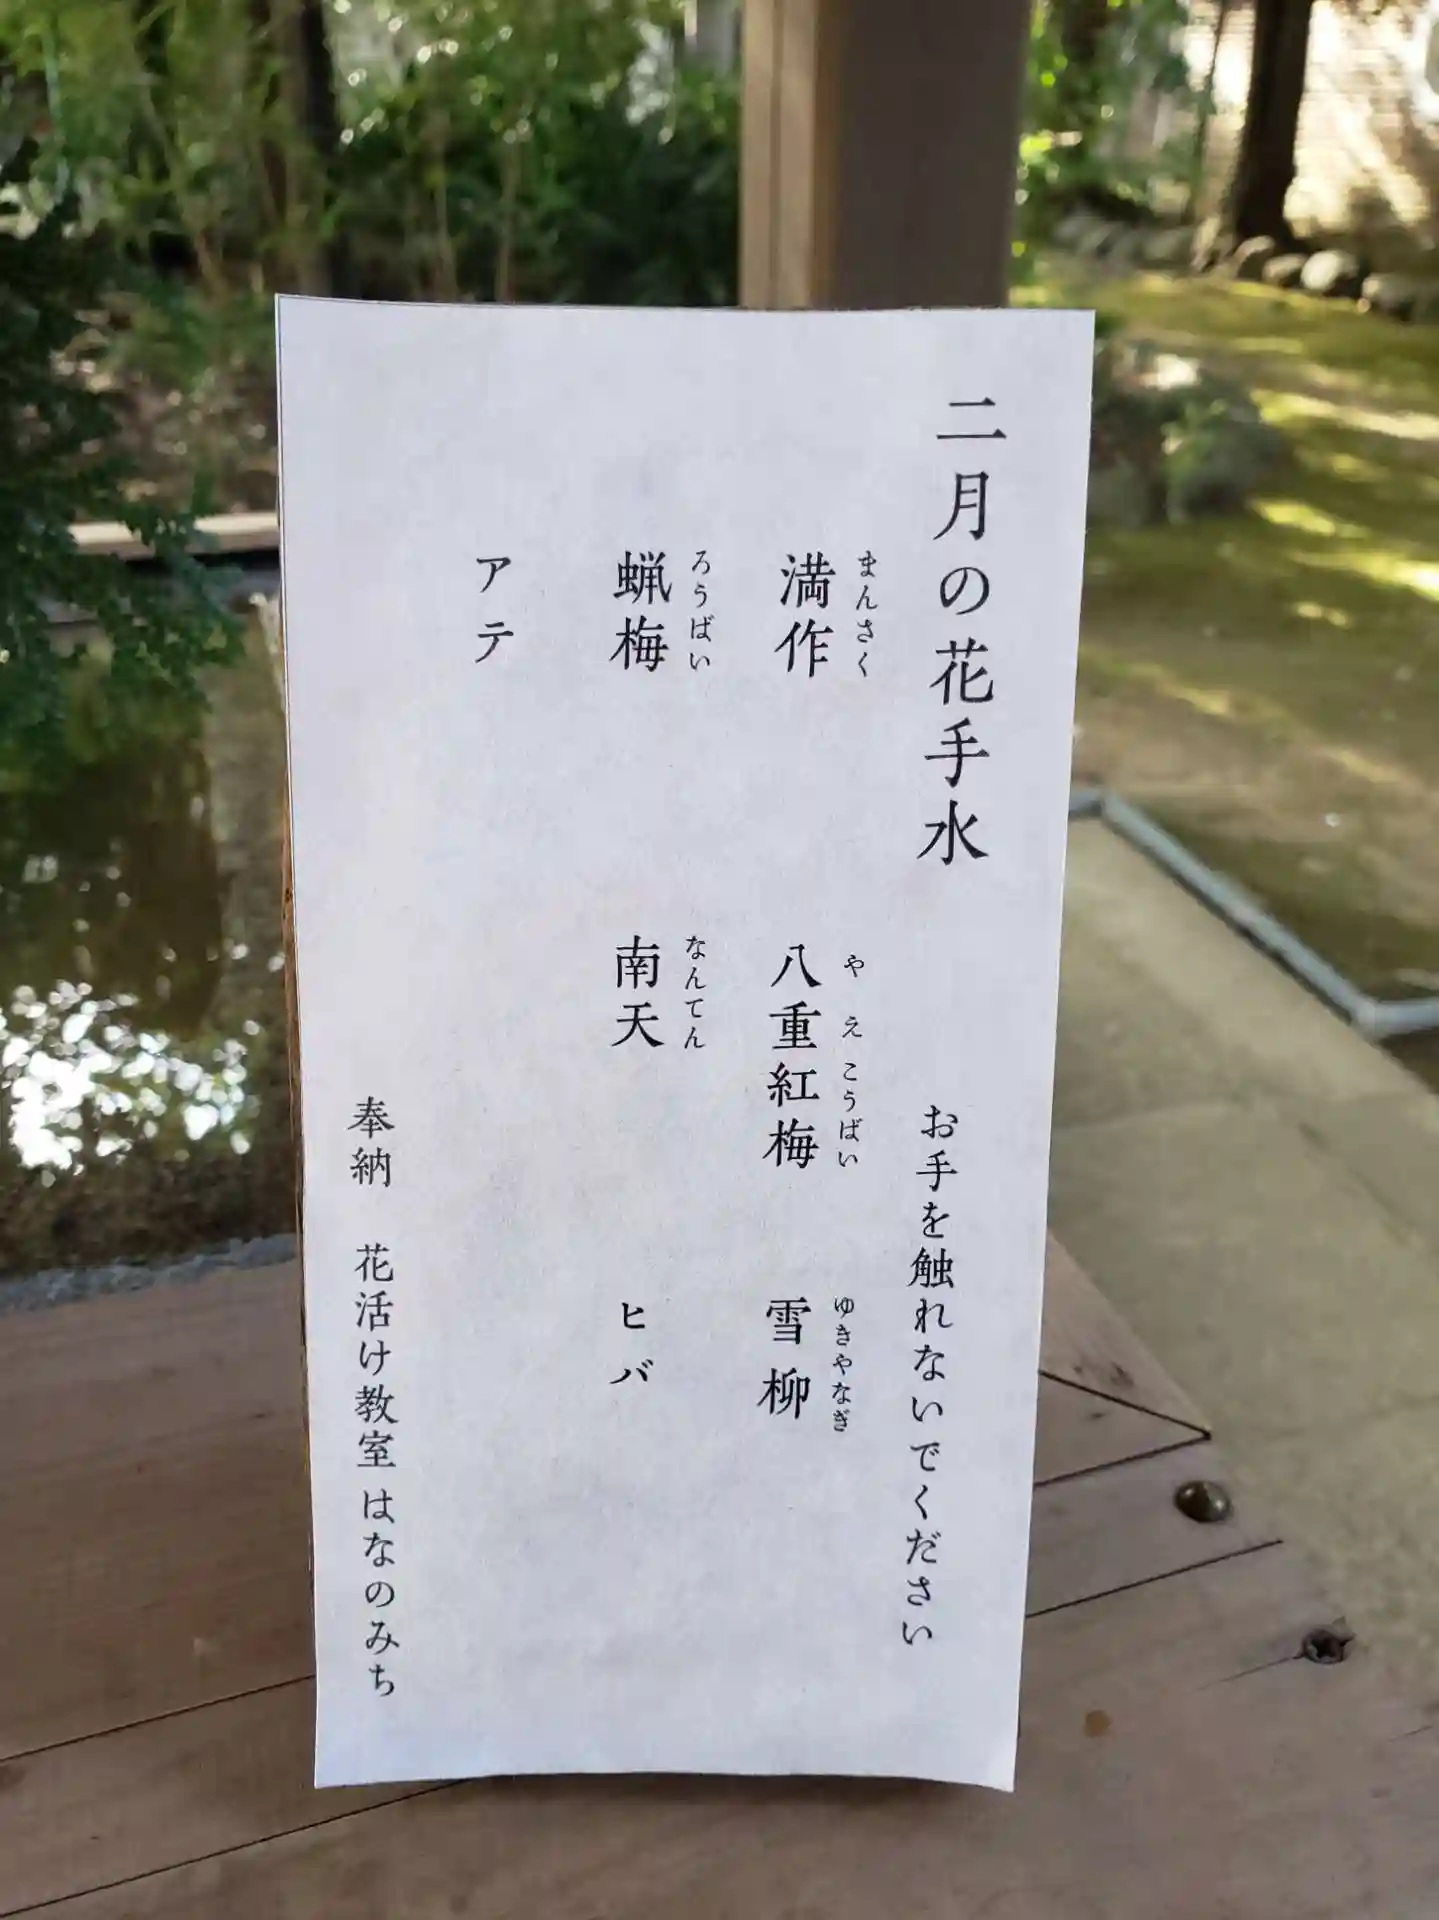 二月の花手水
お手を触れないでください
まんさく
満作
やえこうばい
八重紅梅
ゆきやなぎ
雪柳
ろうばい
蝋梅
なんてん
南天
ヒバ
アテ
奉納 花活け教室 はなのみち